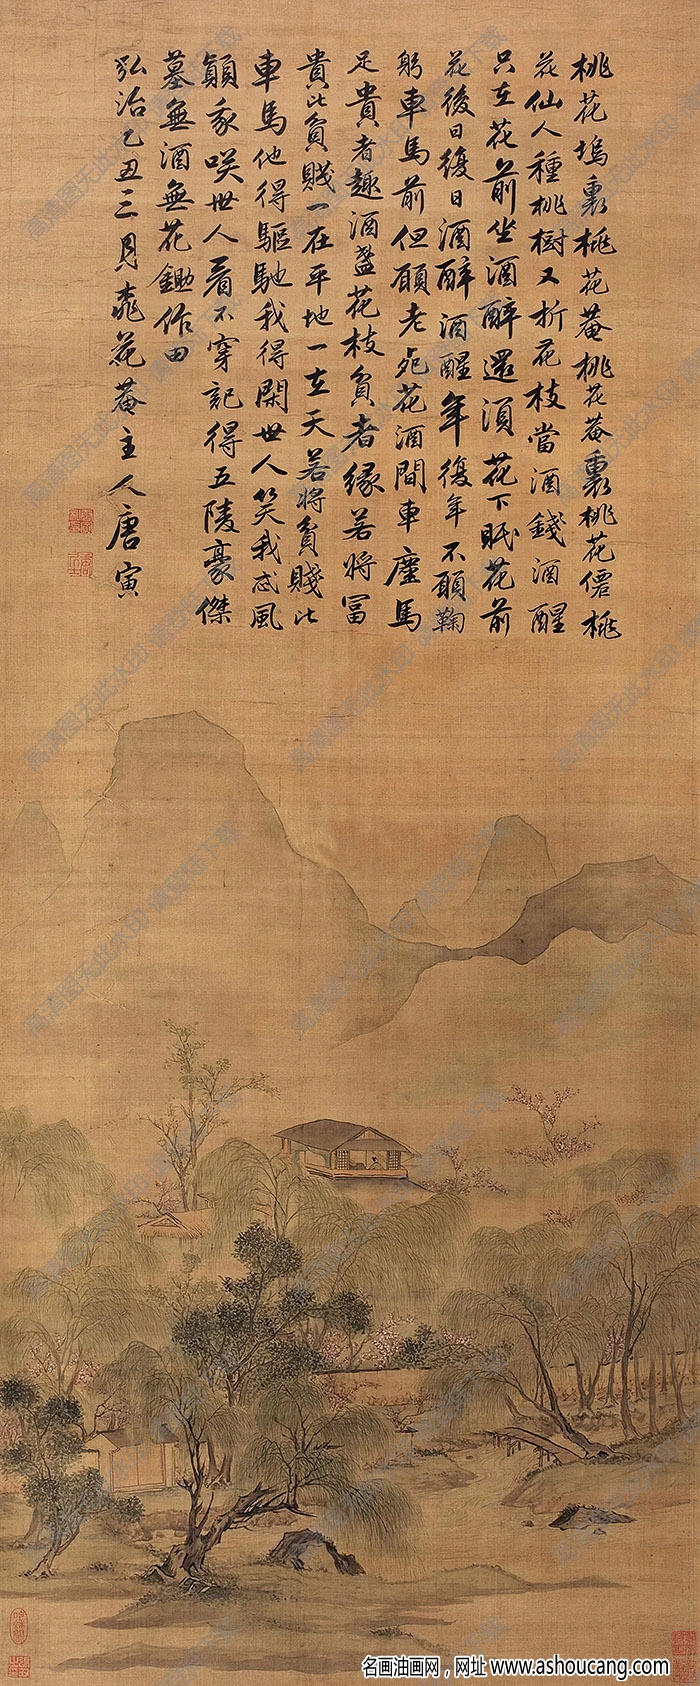 桃花塢裏桃花菴桃花菴裏桃花僊桃
花仙人種桃樹又折花枝當酒錢酒醒
只在花前坐酒醉還須花下眠花前
花後日復日酒醉酒醒年復年不願鞠
躬車馬前但願老死花酒間車塵馬
足貴者趣酒盞花枝貧者緣若將富
貴比貧賤一在平地一在天若將貧賤比
車馬他得驅馳我得閑世人笑我忒風
顛我咲世人看不穿記得五陵豪傑
墓無酒無花鋤作田
弘治乙丑三月桃花菴主人唐寅
高清图无此水印
名画油画网，网址 www.ashoucang.com